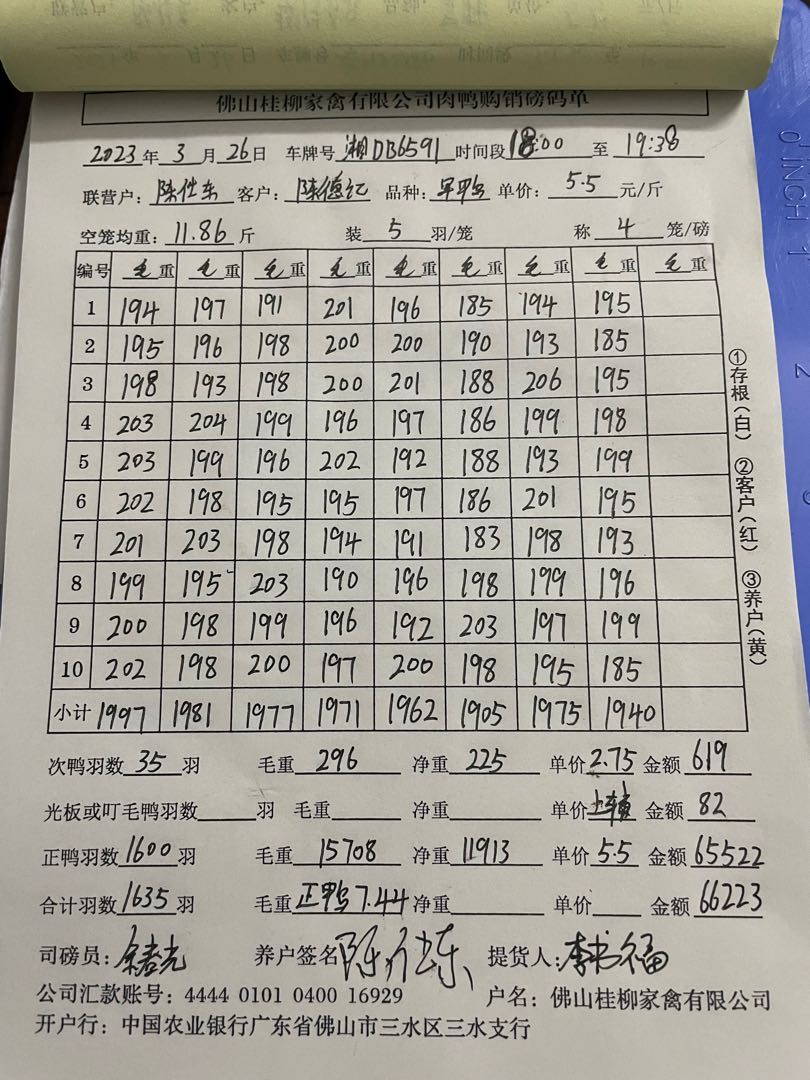 佛山桂柳家禽有限公司肉鸭购销磅码单
2023年 3月 26日 车牌号 湘DB6591 时间段 18:00 至 19:38
联营户: 陈仕东 客户: 陈德记 品种: 早鸭 单价: 5.5 元/斤
空笼均重: 11.86 斤 装 5 羽/笼 称 4 笼/磅
编号 毛重 毛重 毛重 毛重 毛重 毛重 毛重 毛重 毛重
1 194 197 191 201 196 185 194 195
2 195 196 198 200 200 190 193 185
3 198 193 198 200 201 188 206 195
4 203 204 199 196 197 186 199 198
5 203 199 196 202 192 188 193 199
6 202 198 195 195 197 186 201 195
7 201 203 198 194 191 183 198 193
8 199 195 203 190 196 198 199 196
9 200 198 199 196 192 203 197 199
10 202 198 200 197 200 198 195 185
小计 1997 1981 1977 1971 1962 1905 1975 1940
次鸭羽数 35 羽 毛重 296 净重 225 单价 2.75 金额 619
光板或叮毛鸭羽数 羽 毛重 净重 单价 金额 82
正鸭羽数 1600 羽 毛重 15708 净重 11913 单价 5.5 金额 65522
合计羽数 1635 羽 毛重 正鸭7.44 净重 单价 金额 66223
司磅员: 养户签名 陈仕东 提货人: 李书福
公司汇款账号: 4444 0101 0400 16929 户名: 佛山桂柳家禽有限公司
开户行: 中国农业银行广东省佛山市三水区三水支行
①存根(白) ②客户(红) ③养户(黄)
0 INCH 1
2